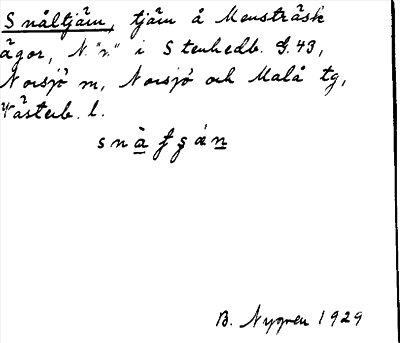 Snåltjärn, tjärn å Mensträsk
ägor, N. "n." i Stenhedb. S. 43,
Norsjö m, Norsjö och Malå tg,
Västerb. l.
B. Nygren 1929